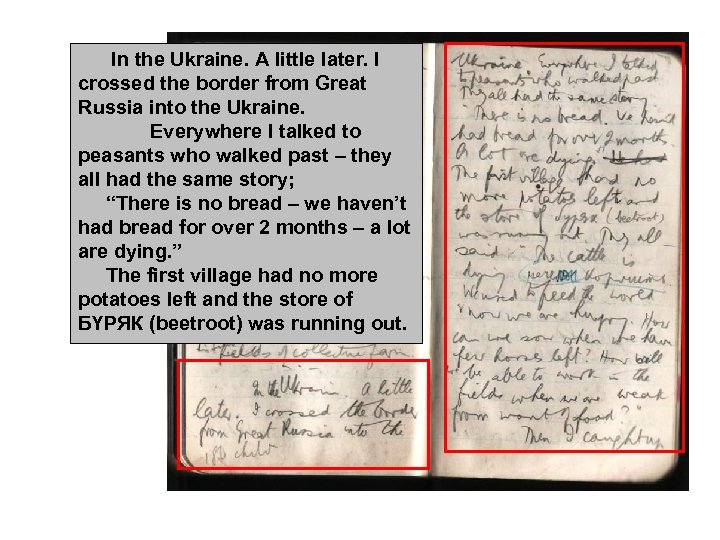 In the Ukraine. A little later. I
crossed the border from Great
Russia into the Ukraine.
Everywhere I talked to
peasants who walked past – they
all had the same story;
“There is no bread – we haven’t
had bread for over 2 months – a lot
are dying. ”
The first village had no more
potatoes left and the store of
БУРЯК (beetroot) was running out.
fields of collective farm
In the Ukraine. A little
later. I crossed the border
from Great Russia into the
Ukraine. Everywhere I talked
to peasants who walked past
They all had the same story
"There is no bread. We haven't
had bread for over 2 months.
A lot are dying."
The first village had no
more potatoes left and
the store of (beetroot)
was running out. They all
said "The cattle is
dying
We used to feed the world
now we are hungry. How
can we sow when we have
few horses left? How will
we be able to work in the
fields when we are weak
from want of food?"
Then I caught up